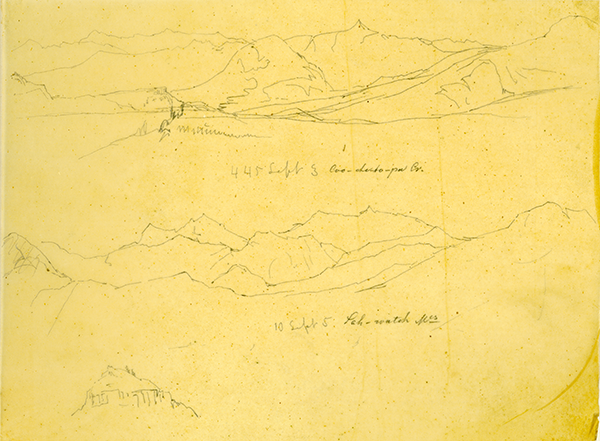 445 Sept 3 Coo-che-to-pa Cr.
10 Sept 5. Sah-watch Mts